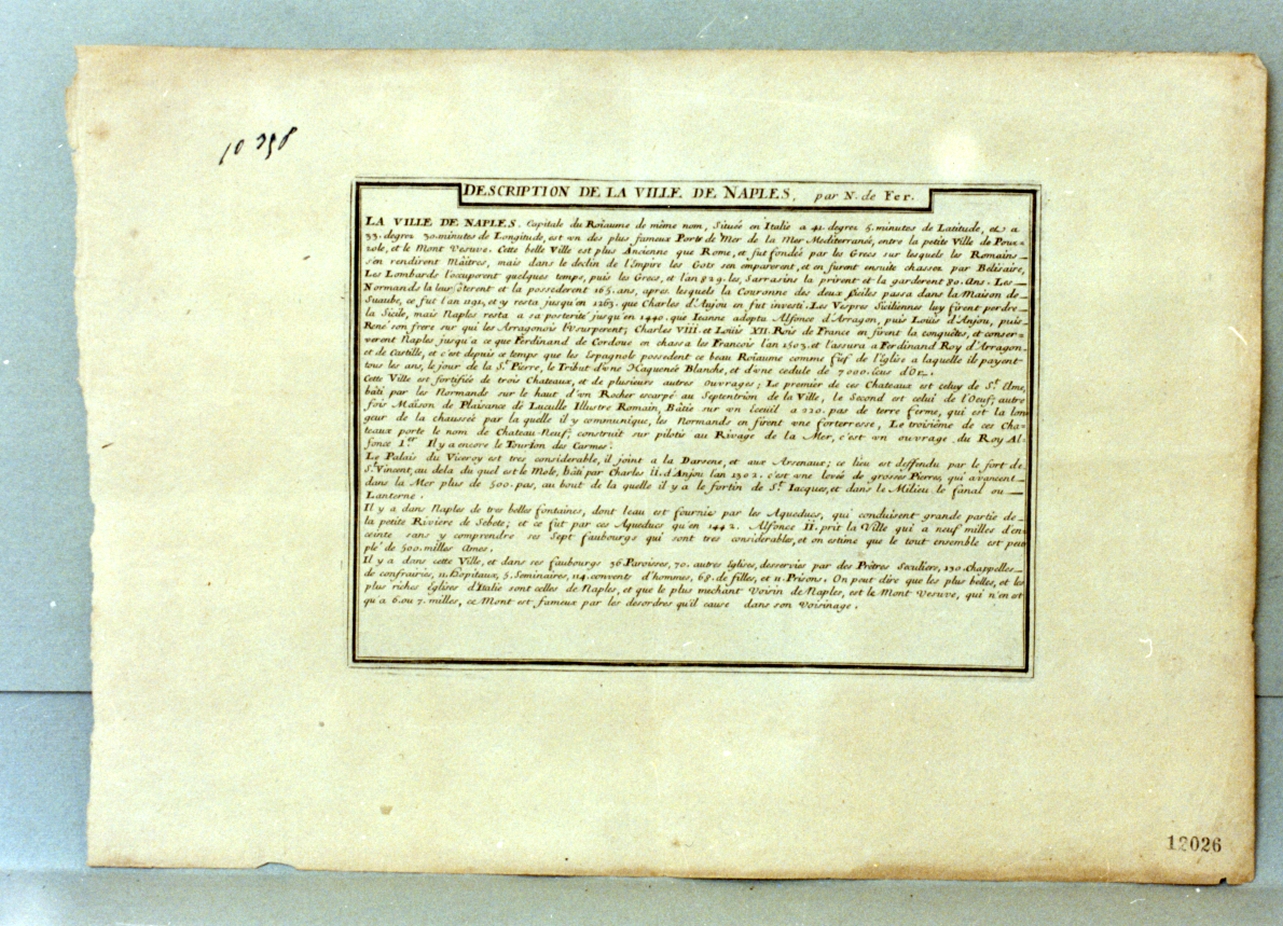 10398
DESCRIPTION DE LA VILLE DE NAPLES, par N. de Fer.
LA VILLE DE NAPLES. Capitale du Roïaume de même nom, Située en Italie a 41. degrez 5. minutes de Latitude, et a
33. degrez 30. minutes de Longitude, est un des plus fameux Ports de Mer de la Mer Mediterranée, entre la petite Ville de Pouz-
zole, et le Mont Vesuve. Cette belle Ville est plus Ancienne que Rome, et fut fondée par les Grecs sur lesquels les Romains
s'en rendirent Maîtres, mais dans le declin de l'Empire les Gots s'en emparerent, et en furent ensuite chassez par Bélisaire,
Les Lombards l'occuperent quelques temps, puis les Grecs, et l'an 829. les Sarrasins la prirent et la garderent 80. Ans. Les
Normands la leur ôterent et la possederent 165. ans, apres lesquels la Couronne des deux Siciles passa dans la Maison de
Suaube, ce fut l'an 1191, et y resta jusqu'en 1263. que Charles d'Anjou en fut investi. Les Vespres Siciliennes luy firent perdre
la Sicile, mais Naples resta a sa posterité jusqu'en 1440. que Ieanne adopta Alfonce d'Arragon, puis Loüis d'Anjou, puis
René son frere sur qui les Arragonois l'Vsurperent; Charles VIII. et Loüis XII. Rois de France en firent la conquêtes, et conser-
verent Naples jusqu'a ce que Ferdinand de Cordoue en chassa les Francois l'an 1503. et l'assura a Ferdinand Roy d'Arragon
et de Castille, et c'est depuis ce temps que les Espagnols possedent ce beau Roïaume comme fief de l'église a laquelle ils payent
tous les ans, le jour de la St. Pierre, le Tribut d'une Haquenée Blanche, et d'une cedule de 7000. Ecus d'Or.
Cette Ville est fortifiée de trois Chateaux, et de plusieurs autres ouvrages; Le premier de ces Chateaux est celuy de St. Elme,
bâti par les Normands sur le haut d'un Rocher escarpé au Septentrion de la Ville, le Second est celui de l'Oeuf; autre
fois Maison de Plaisance de Luculle Illustre Romain, Bâtie sur un Eceuil a 220. pas de terre ferme, qui est la lon
geur de la chaussée par la quelle il y communique, les Normands en firent une forterresse, Le troisième de ces Cha-
teaux porte le nom de Chateau-Neuf; construit sur pilotis au Rivage de la Mer, c'est un ouvrage du Roy Al-
fonce 1er. Il y a encore le Tourion des Carmes.
Le Palais du Viceroy est tres considerable, il joint a la Darsene, et aux Arsenaux; ce lieu est deffendu par le fort de
St. Vincent, au dela du quel est le Mole, Bâti par Charles II. d'Anjou l'an 1302. c'est une levée de grosses Pierres, qui avancent
dans la Mer plus de 500. pas, au bout de la quelle il y a le fortin de St. Iacques, et dans le Milieu le fanal ou
Lanterne.
Il y a dans Naples de tres belles fontaines, dont l'eau est fournie par les Aqueducs, qui conduisent grande partie de
la petite Riviere de Sebete; et ce fut par ces Aqueducs qu'en 1442. Alfonce II. prit la Ville qui a neuf milles d'en
ceinte sans y comprendre ses Sept faubourgs qui sont tres considerables, et on estime que le tout ensemble est peu
plé de 500. milles Ames.
Il y a dans cette Ville, et dans ses faubourgs 36. Paroisses, 70. autres Eglises, desservies par des Prêtres Seculiers, 130. Chappelles
de confrairies, 11. Hospitaux, 5. Seminaires, 114. convents d'hommes, 68. de filles, et 11. Prisons. On peut dire que les plus belles, et les
plus riches Eglises d'Italie sont celles de Naples, et que le plus mechant Voisin de Naples, est le Mont Vesuve, qui n'en est
qu'a 6. ou 7. milles, ce Mont est fameux par les desordres qu'il cause dans son Voisinage.
12026